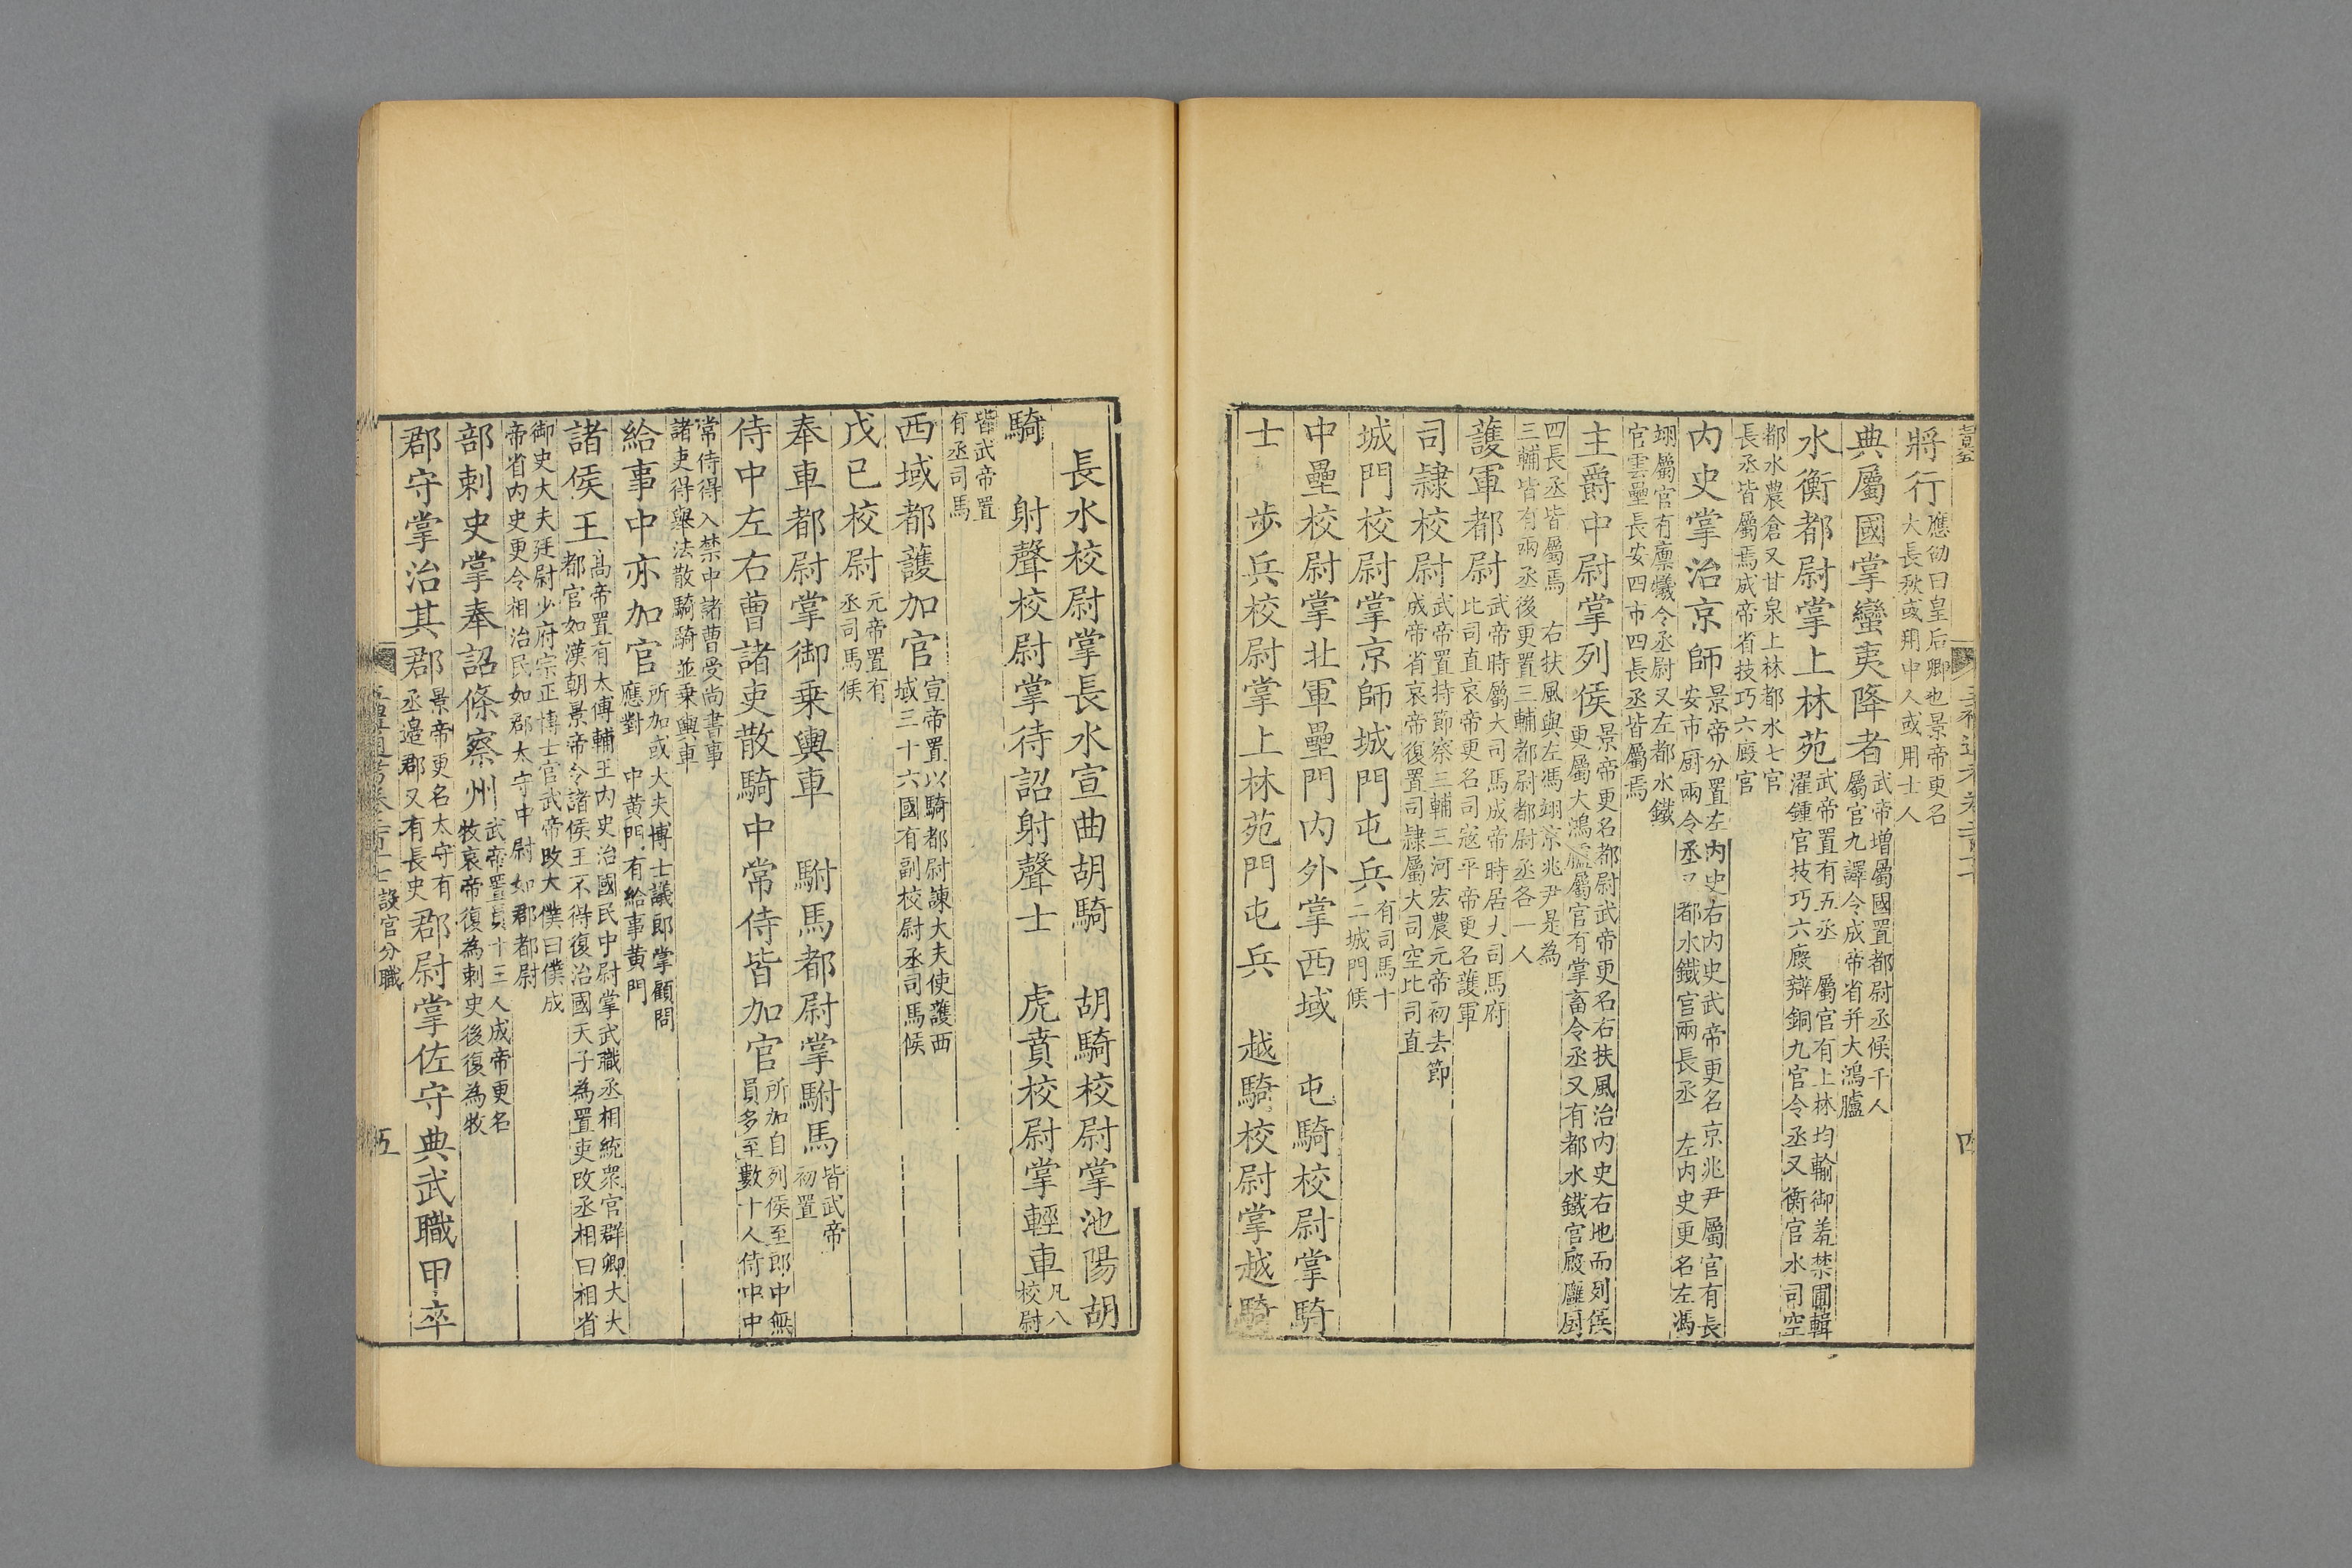 將行應劭曰皇后卿也景帝更名大長秋或用中人或用士人
典屬國掌蠻夷降者武帝增屬國置都尉丞候千人屬官九譯令成帝省并大鴻臚
水衡都尉掌上林苑武帝置有五丞 屬官有上林均輸御羞禁圃輯濯鍾官技巧六廄辯銅九官令丞又衡官水司空
都水農倉又甘泉上林都水七官長丞皆屬焉成帝省技巧六廄官
內史掌治京師景帝分置左內史右內史武帝更名京兆尹屬官有長安市厨兩令丞又都水鐵官兩長丞 左內史更名左馮
翊屬官有廩犧令丞尉又左都水鐵官雲壘長安四市四長丞皆屬焉
主爵中尉掌列侯景帝更名都尉武帝更名右扶風治內史右地而列侯更屬大鴻臚屬官有掌畜令丞又有都水鐵官廄廱厨
四長丞皆屬焉 右扶風與左馮翊京兆尹是為三輔皆有兩丞後更置三輔都尉都尉丞各一人
護軍都尉武帝時屬大司馬成帝時居大司馬府比司直哀帝更名司寇平帝更名護軍
司隸校尉武帝置持節察三輔三河宏農元帝初去節成帝省哀帝復置司隸屬大司空比司直
城門校尉掌京師城門屯兵有司馬十二城門候
中壘校尉掌北軍壘門內外掌西域 屯騎校尉掌騎
士 步兵校尉掌上林苑門屯兵 越騎校尉掌越騎
長水校尉掌長水宣曲胡騎 胡騎校尉掌池陽胡
騎 射聲校尉掌待詔射聲士 虎賁校尉掌輕車凡八校尉
皆武帝置有丞司馬
西域都護加官宣帝置以騎都尉諫大夫使護西域三十六國有副校尉丞司馬候
戊已校尉元帝置有丞司馬候
奉車都尉掌御乗輿車 駙馬都尉掌駙馬皆武帝初置
侍中左右曹諸吏散騎中常侍皆加官所加自列侯至郎中無員多至數十人侍中中
常侍得入禁中諸曹受尚書事諸吏得舉法散騎騎並乗輿車
給事中亦加官所加或大夫博士議郎掌顧問應對 中黃門有給事黃門
諸侯王高帝置有太傅輔王內史治國民中尉掌武職丞相統眾官群卿大夫都官如漢朝景帝令諸侯王不得復治國天子為置吏改丞相曰相省
御史大夫廷尉少府宗正博士官武帝改太僕曰僕成帝省內史更令相治民如郡太守中尉如郡都尉
部刺史掌奉詔條察州武帝置員十三人成帝更名牧哀帝復為刺史後復為牧
郡守掌治其郡景帝更名太守有丞邉郡又有長史 郡尉掌佐守典武職甲卒
設官分職
五